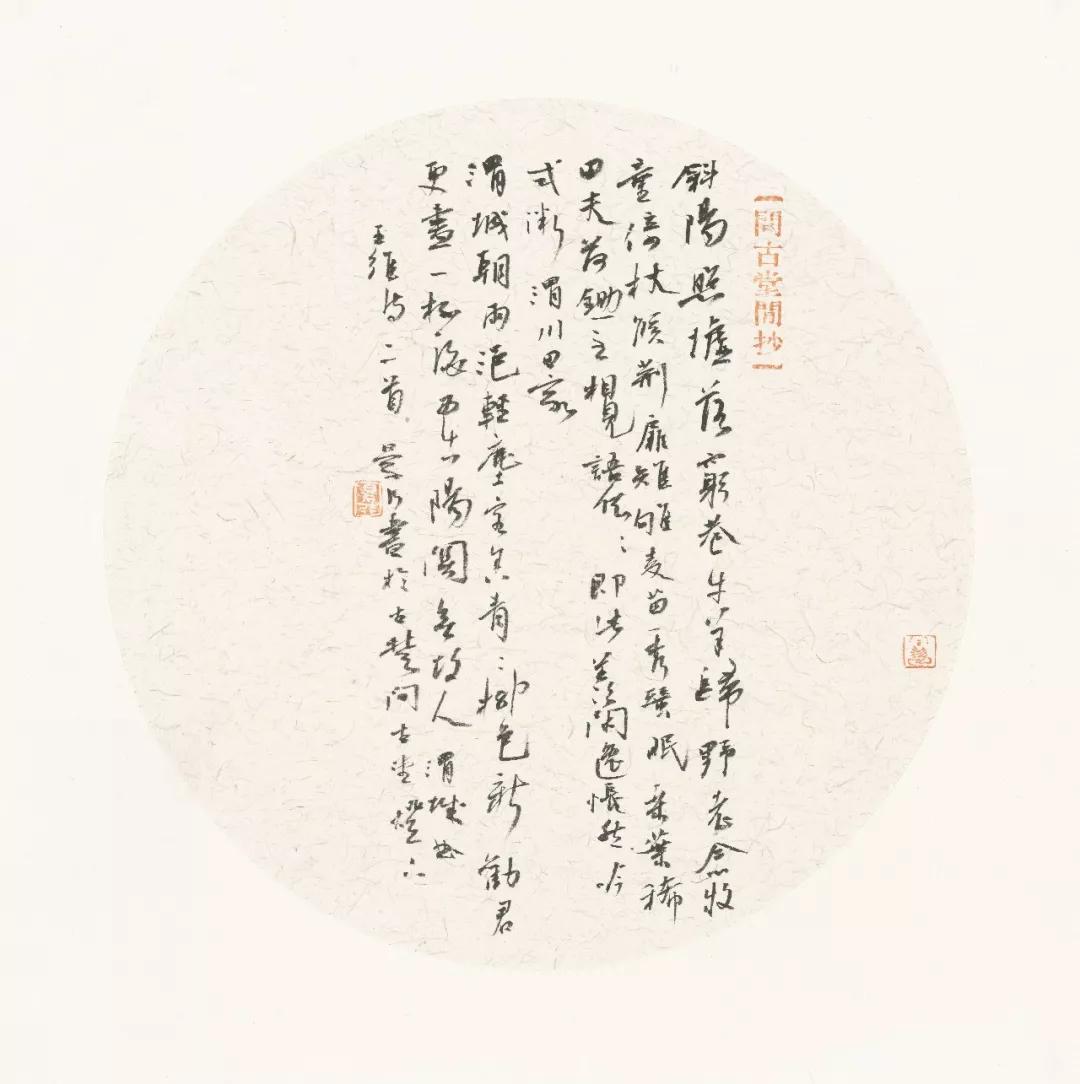 問古堂閒抄
斜陽照墟落窮巷牛羊歸野老念牧
童倚杖候荊扉雉雊麥苗秀蠶眠桑葉稀
田夫荷鋤立相見語依〻即此羨閑逸悵然吟
式微 渭川田家
渭城朝雨浥輕塵客舍青〻柳色新勸君
更盡一杯酒西出陽關無故人 渭城曲
王維詩二首 書於古楚问古堂燈下